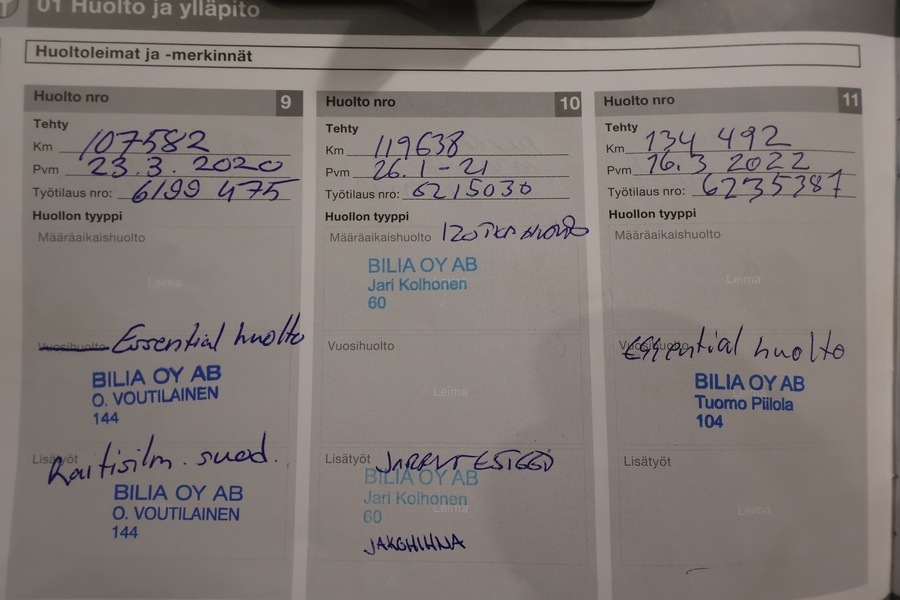 01 Huolto ja ylläpito
Huoltoleimat ja -merkinnät
Huolto nro 9
Tehty
Km 107582
Pvm 23.3.2020
Työtilaus nro: 6199 475
Huollon tyyppi
Määräaikaishuolto
Leima
Vuosihuolto Essential huolto
BILIA OY AB
O. VOUTILAINEN
144
Lisätyöt Raitisilm. suod.
BILIA OY AB
O. VOUTILAINEN
144
Huolto nro 10
Tehty
Km 119638
Pvm 26.1-21
Työtilaus nro: 6215030
Huollon tyyppi
Määräaikaishuolto 120TKM HUOLTO
BILIA OY AB
Jari Kolhonen
60
Vuosihuolto
Leima
Lisätyöt
BILIA OY AB
Jari Kolhonen
60
Leima
JAKOHIHNA
Huolto nro 11
Tehty
Km 134 492
Pvm 16.3 2022
Työtilaus nro: 6235387
Huollon tyyppi
Määräaikaishuolto
Leima
Vuosihuolto Essential huolto
BILIA OY AB
Tuomo Piilola
104
Lisätyöt
Leima